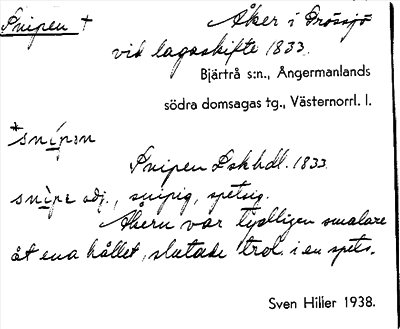 Snipen † Åker i Prössjö
vid lagaskifte 1833.
Bjärtrå s:n., Ångermanlands
södra domsagas tg., Västernorrl. l.
*snípən
Snipen Lskhdl. 1833.
adj., snipig, spetsig.
Åkern var tydligen smalare
åt ena hållet, slutade trol. i en spets.
Sven Hiller 1938.